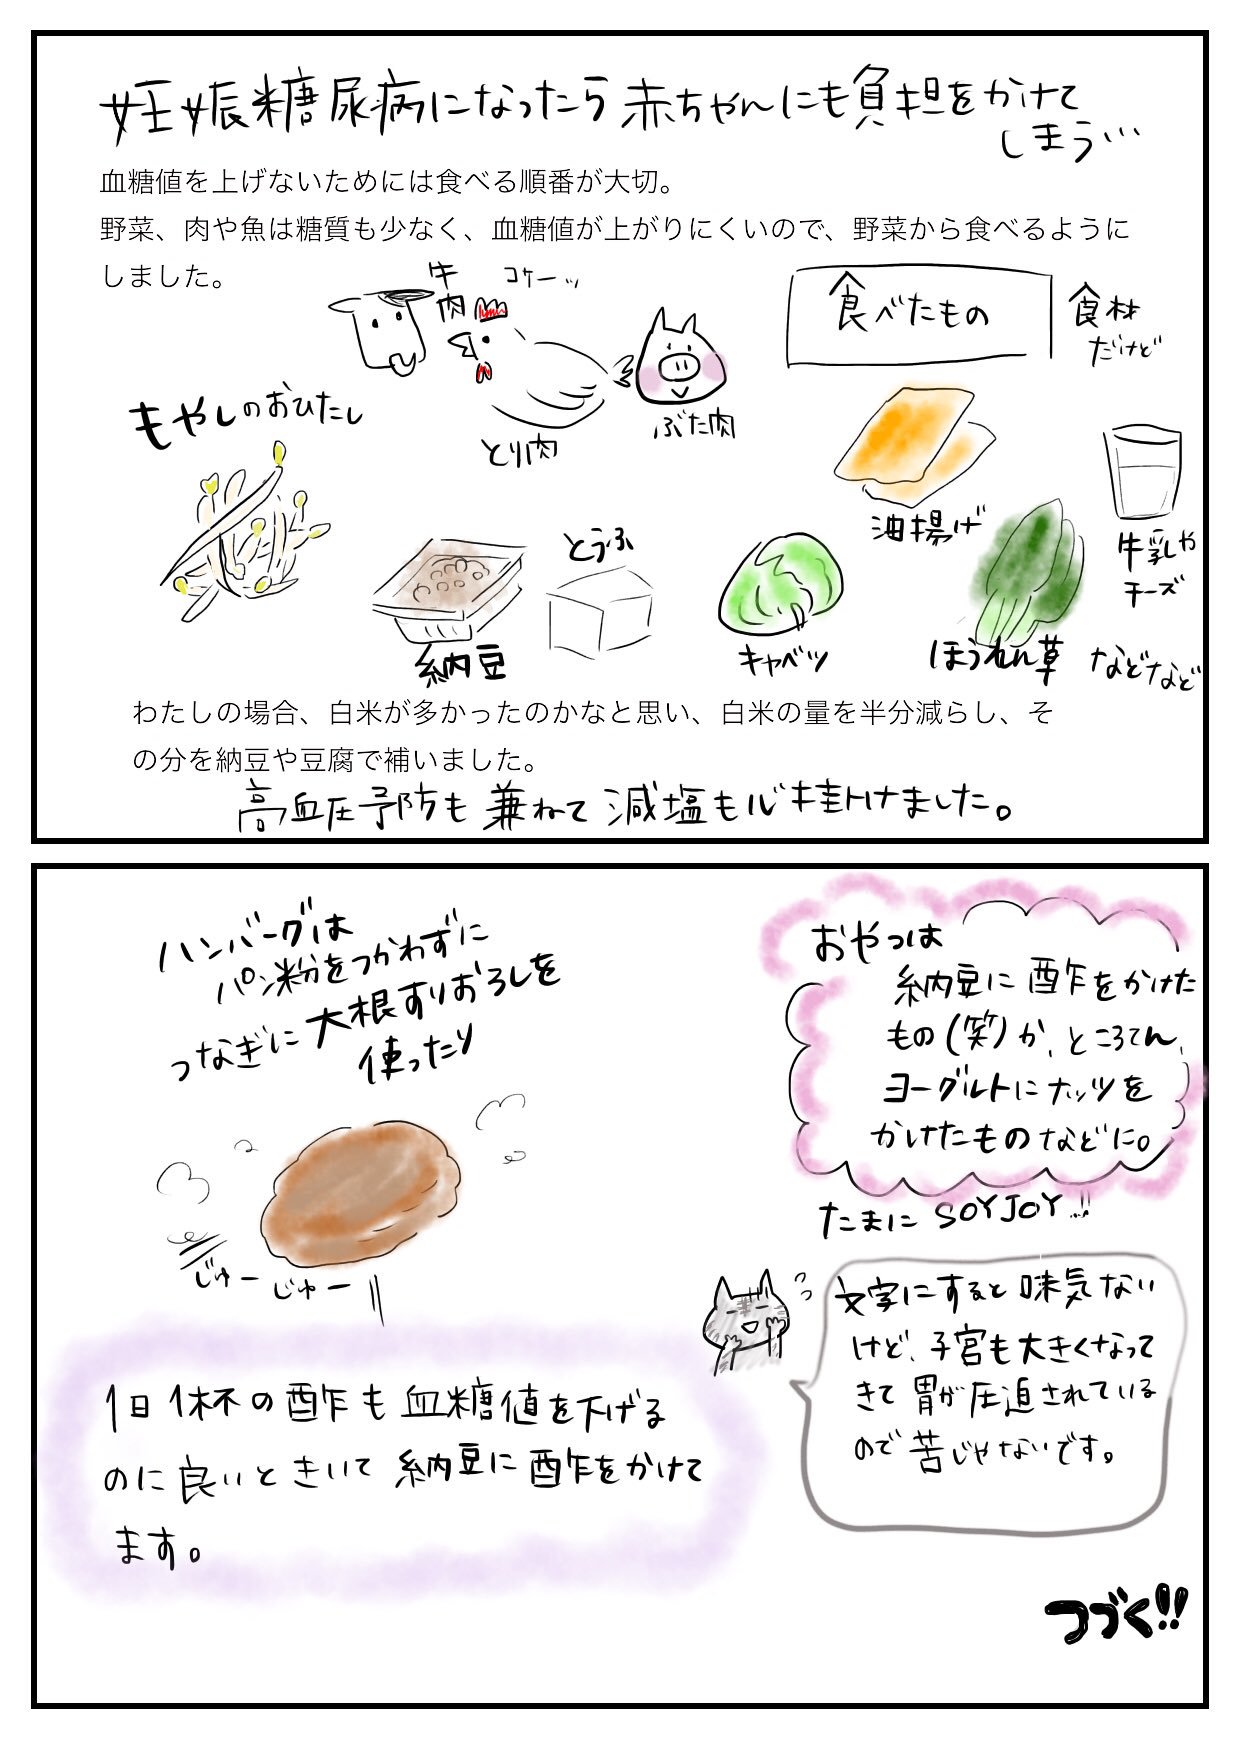 妊娠糖尿病になったら赤ちゃんにも負担をかけて
しまう…
血糖値を上げないためには食べる順番が大切。
野菜、肉や魚は糖質も少なく、血糖値が上がりにくいので、野菜から食べるように
しました。
牛肉
コケーッ
食べたもの
食材
だけど
もやしのおひたし
とり肉
ぶた肉
油揚げ
牛乳や
チーズ
納豆
とうふ
キャベツ
ほうれん草
などなど
わたしの場合、白米が多かったのかなと思い、白米の量を半分減らし、そ
の分を納豆や豆腐で補いました。
高血圧予防も兼ねて減塩も心掛けました。
ハンバーグは
パン粉をつかわずに
つなぎに大根すりおろしを
使ったり
じゅーじゅー
おやつは
納豆に酢をかけた
もの(笑)か、ところてん、
ヨーグルトにナッツを
かけたものなどに。
たまにSOYJOY!!
文字にすると味気ない
けど、子宮も大きくなって
きて胃が圧迫されている
ので苦じゃないです。
1日1杯の酢も血糖値を下げる
のに良いときいて納豆に酢をかけて
ます。
つづく!!